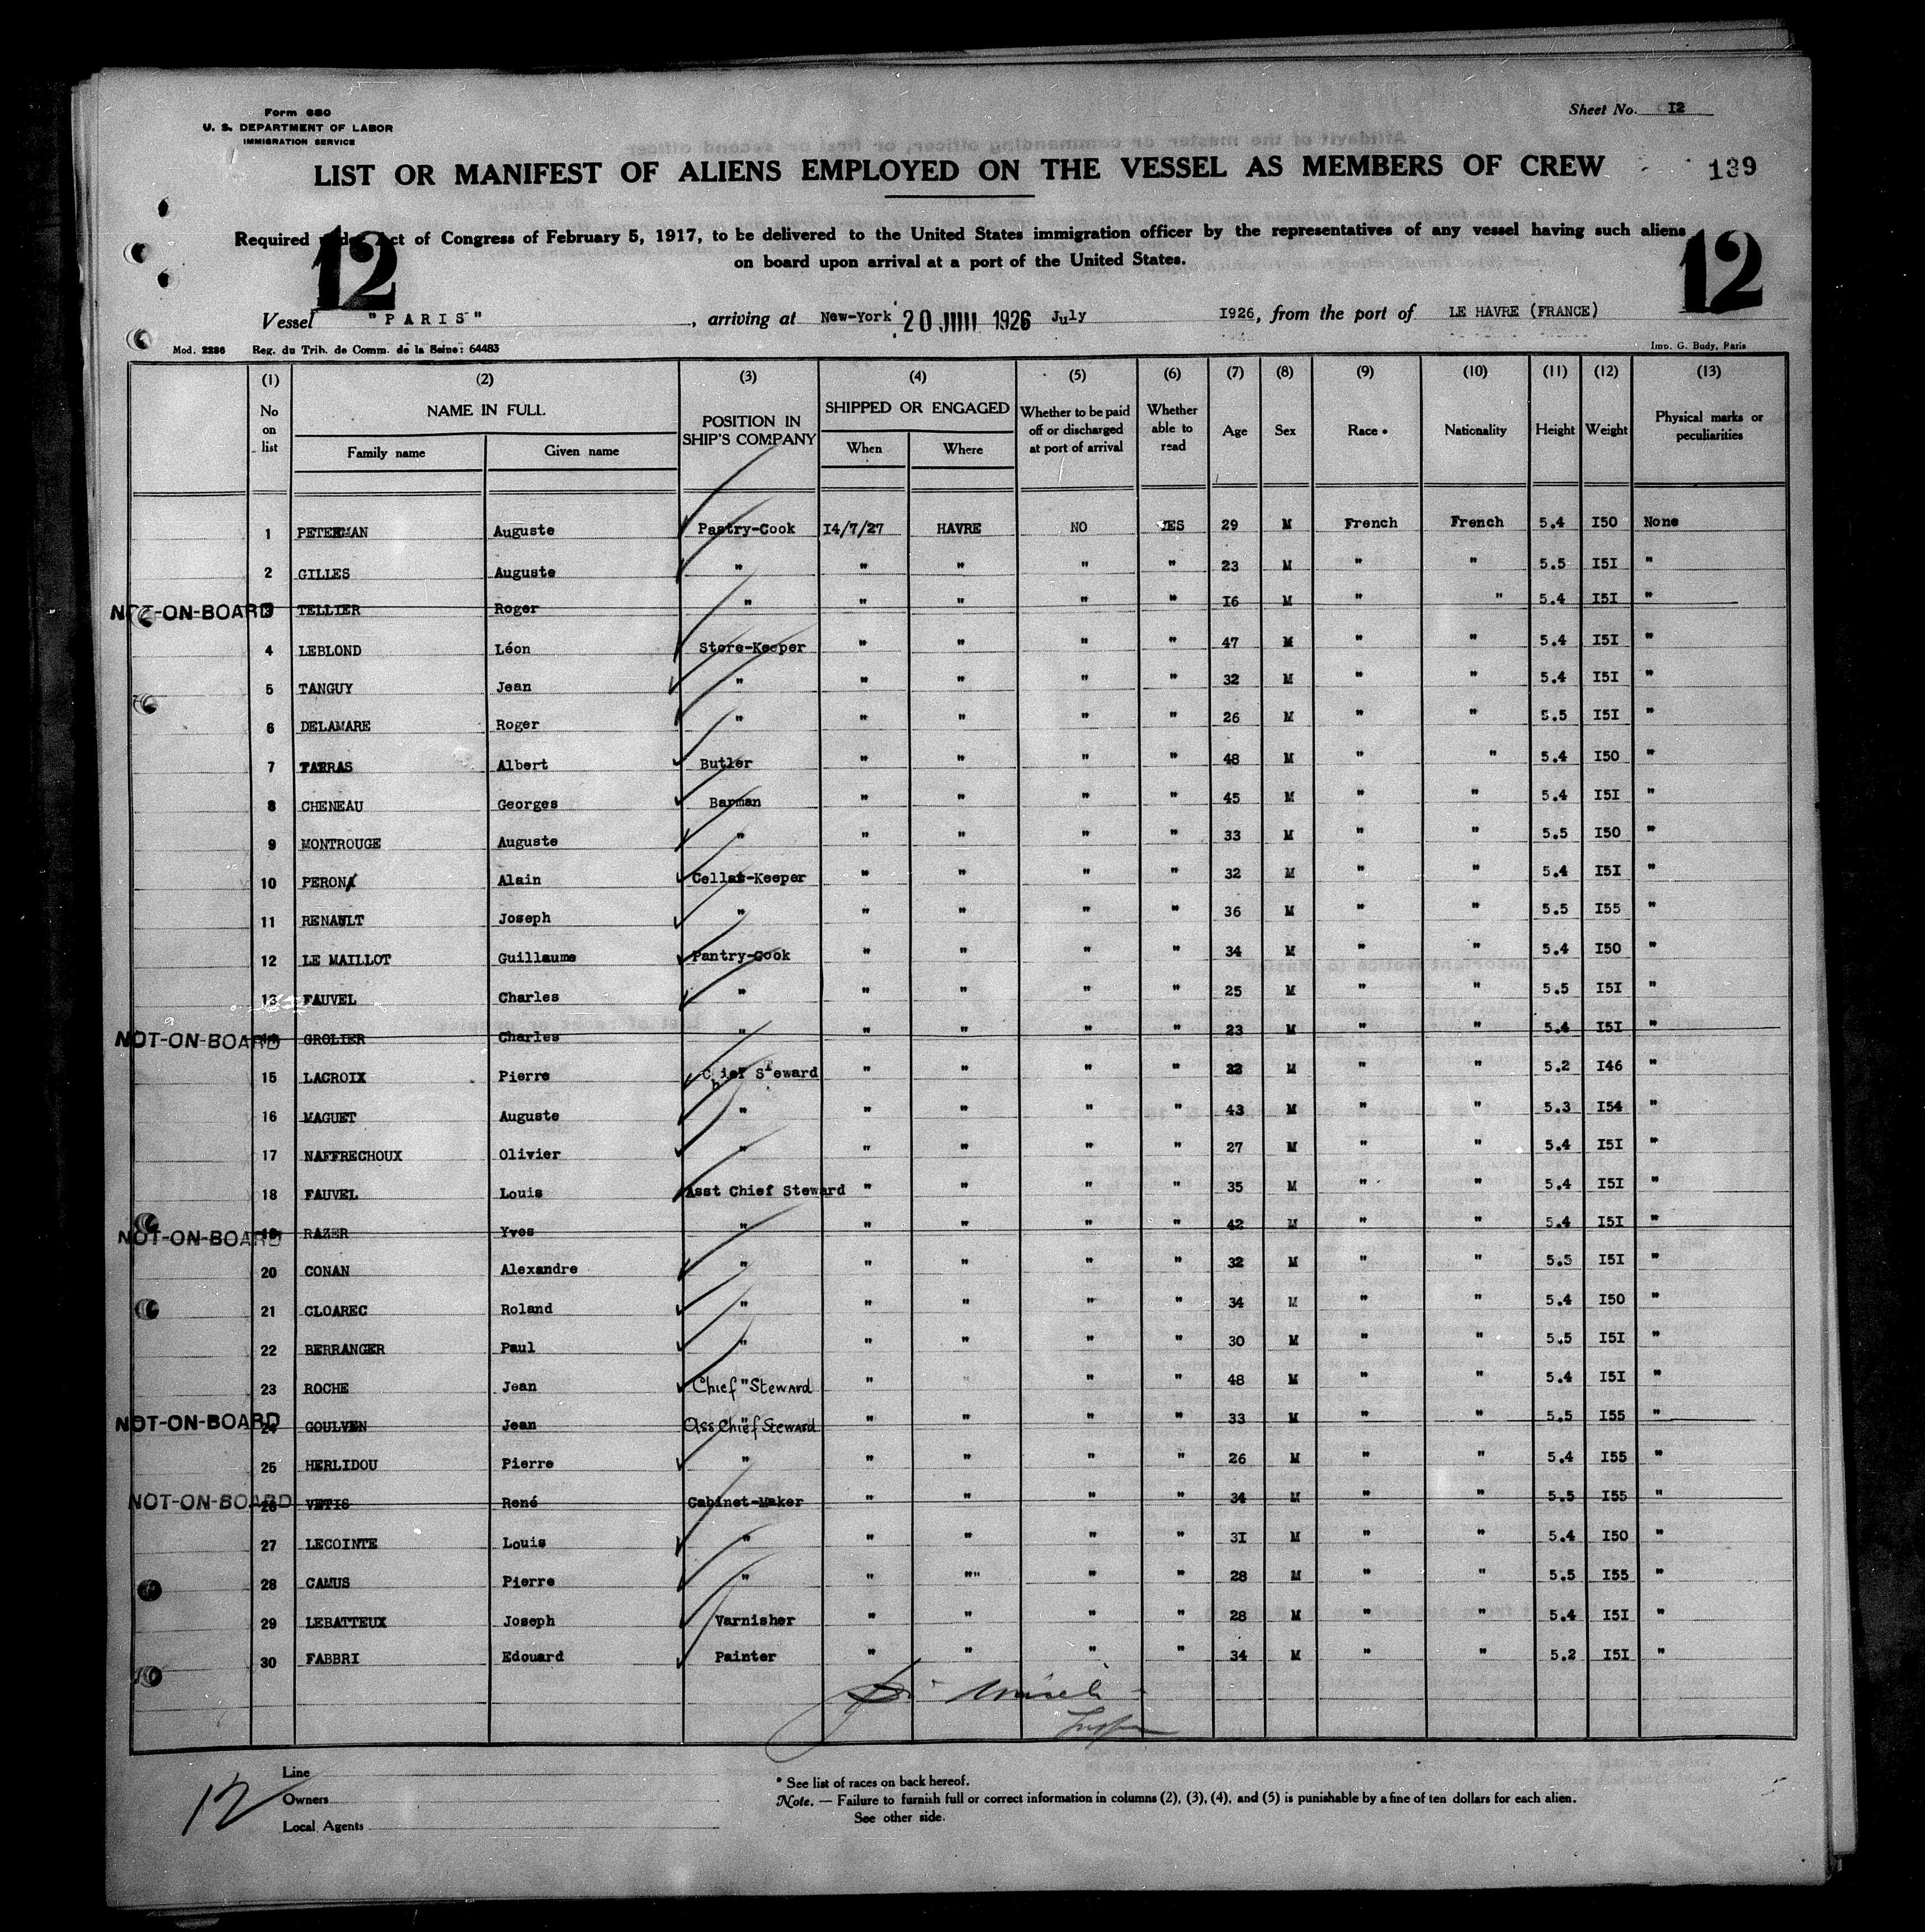 Form 680
U. S. DEPARTMENT OF LABOR
IMMIGRATION SERVICE
Sheet No. 12
LIST OR MANIFEST OF ALIENS EMPLOYED ON THE VESSEL AS MEMBERS OF CREW
139
Required under Act of Congress of February 5, 1917, to be delivered to the United States immigration officer by the representatives of any vessel having such aliens
on board upon arrival at a port of the United States.
12 12
Vessel "PARIS", arriving at New-York 20 1926 July 1926, from the port of LE HAVRE (FRANCE)
Mod. 2286 Reg. du Trib. de Comm. de la Seine: 64483 Imp. G. Budy, Paris
(1) (2) (3) (4) (5) (6) (7) (8) (9) (10) (11) (12) (13)
No on list NAME IN FULL Family name Given name POSITION IN SHIP'S COMPANY SHIPPED OR ENGAGED When Where Whether to be paid off or discharged at port of arrival Whether able to read Age Sex Race • Nationality Height Weight Physical marks or peculiarities
1 PETERMAN Auguste Pastry-Cook 14/7/27 HAVRE NO YES 29 M French French 5.4 150 None
2 GILLES Auguste " " " " " 23 M " " 5.5 151 "
NOT-ON-BOARD 3 TELLIER Roger " " " " " 16 M " " 5.4 151 "
4 LEBLOND Léon Store-Keeper " " " " 47 M " " 5.4 151 "
5 TANGUY Jean " " " " " 32 M " " 5.4 151 "
6 DELAMARE Roger " " " " " 26 M " " 5.5 151 "
7 Albert Butler " " " " 48 M " " 5.4 150 "
8 CHENEAU Georges Barman " " " " 45 M " " 5.4 151 "
9 MONTROUGE Auguste " " " " " 33 M " " 5.5 150 "
10 PERON Alain Cellar-Keeper " " " " 32 M " " 5.4 151 "
11 RENAULT Joseph " " " " " 36 M " " 5.5 155 "
12 LE MAILLOT Guillaume Pantry-Cook " " " " 34 M " " 5.4 150 "
13 FAUVEL Charles " " " " " 25 M " " 5.5 151 "
NOT-ON-BOARD 14 GROLIER Charles " " " " " 23 M " " 5.4 151 "
15 LACROIX Pierre Chief Steward " " " " 22 M " " 5.2 146 "
16 MAGUET Auguste " " " " " 43 M " " 5.3 154 "
17 NAFFRECHOUX Olivier " " " " " 27 M " " 5.4 151 "
18 FAUVEL Louis Asst Chief Steward " " " " 35 M " " 5.4 151 "
NOT-ON-BOARD 19 RAZER Yves " " " " " 42 M " " 5.4 151 "
20 CONAN Alexandre " " " " " 32 M " " 5.5 151 "
21 CLOAREC Roland " " " " " 34 M " " 5.4 150 "
22 BERRANGER Paul " " " " " 30 M " " 5.5 151 "
23 ROCHE Jean Chief " Steward " " " " 48 M " " 5.4 151 "
NOT-ON-BOARD 24 GOULVEN Jean Ass Chief Steward " " " " 33 M " " 5.5 155 "
25 HERLIDOU Pierre " " " " " 26 M " " 5.4 155 "
NOT-ON-BOARD 26 VETIS René Cabinet-Maker " " " " 34 M " " 5.5 155 "
27 LECOINTE Louis " " " " " 31 M " " 5.4 150 "
28 CAMUS Pierre " " "" " " 28 M " " 5.5 155 "
29 LEBATTEUX Joseph Varnisher " " " " 28 M " " 5.4 151 "
30 FABBRI Edouard Painter " " " " 34 M " " 5.2 151 "
Line
Owners
Local Agents
12
* See list of races on back hereof.
Note. — Failure to furnish full or correct information in columns (2), (3), (4), and (5) is punishable by a fine of ten dollars for each alien.
See other side.